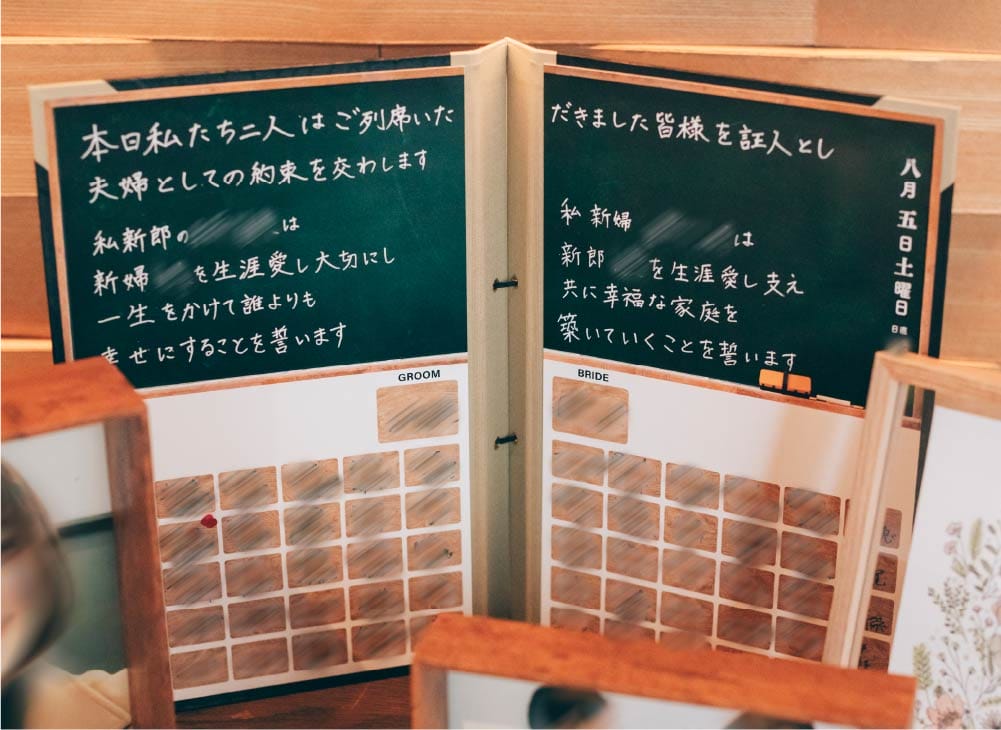 本日私たち二人はご列席いた
だきました皆様を証人とし
夫婦としての約束を交わします
私新郎の は
新婦 を生涯愛し大切にし
一生をかけて誰よりも
幸せにすることを誓います
私新婦 は
新郎 を生涯愛し支え
共に幸福な家庭を
築いていくことを誓います
八月五日土曜日
日直
GROOM
BRIDE